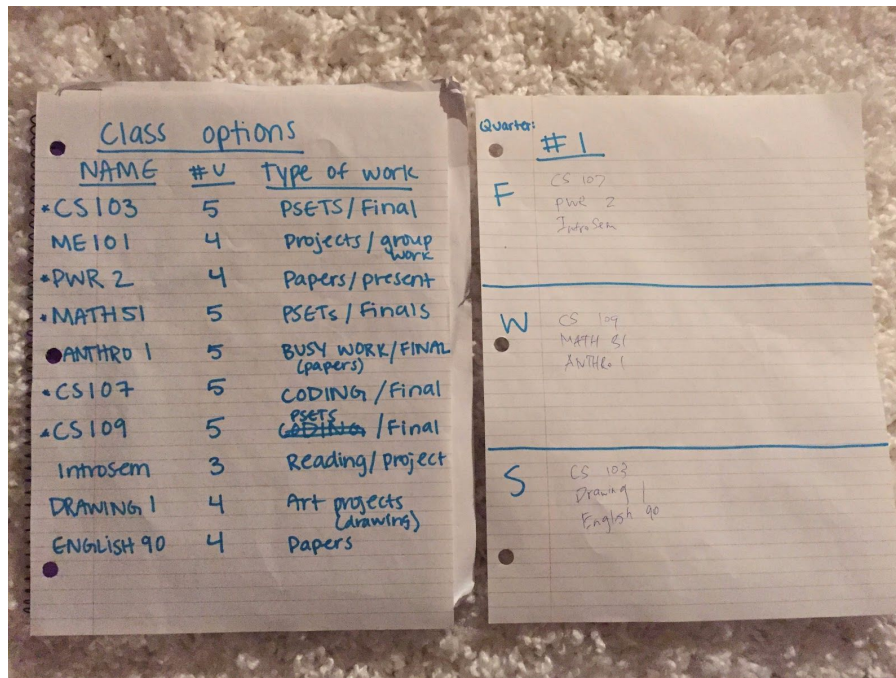 Class options
NAME #U Type of work
*CS103 5 PSETS/Final
ME101 4 Projects/group
work
*PWR 2 4 Papers/present
*MATH51 5 PSETs/Finals
ANTHRO 1 5 BUSY WORK/FINAL
(papers)
*CS107 5 CODING/Final
PSETS
*CS109 5 CODING /Final
Introsem 3 Reading/project
DRAWING 1 4 Art projects
(drawing)
ENGLISH 90 4 Papers
Quarter:
#1
F
CS 107
PWR 2
IntroSem
W
CS 109
MATH 51
ANTHRO 1
S
CS 103
Drawing 1
English 90